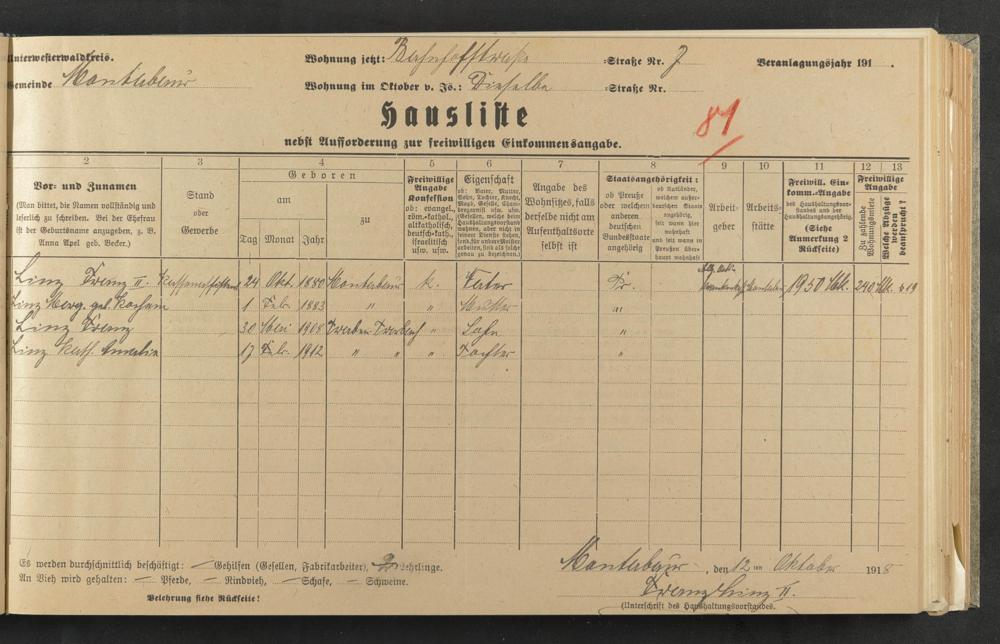 Unterwesterwaldkreis.
Wohnung jetzt: Bahnhofstraße =Straße Nr. 7
Veranlagungsjahr 191 .
Gemeinde Montabaur
Wohnung im Oktober v. Js.: Dieselbe =Straße Nr.
Hausliste
81
nebst Aufforderung zur freiwilligen Einkommensangabe.
2 3 4 5 6 7 8 9 10 11 12 13
Vor- und Zunamen
(Man bittet, die Namen vollständig und
leserlich zu schreiben. Bei der Ehefrau
ist der Geburtsname anzugeben, z. B.
Anna Apel geb. Becker.)
Stand
oder
Gewerbe
Geboren
am
zu
Tag Monat Jahr
Freiwillige
Angabe
Konfession
ob: evangel.,
röm.-kathol.,
altkatholisch,
deutsch-kath.,
israelitisch
usw. usw.
Eigenschaft
ob: Vater, Mutter,
Sohn, Tochter, Knecht,
Magd, Geselle,
Angabe des
Wohnsitzes, falls
derselbe nicht am
Aufenthaltsorte
selbst ist
Staatsangehörigkeit:
ob Preuße
oder welchem
anderen
deutschen
Bundesstaate
angehörig
ob Ausländer,
welchem außer-
deutschen Staate
angehörig,
seit wann hier
wohnhaft
und seit wann in
Preußen über-
haupt wohnhaft
Arbeit-
geber
Arbeits-
stätte
Freiwill. Ein-
komm.-Angabe
des Haushaltungsvor-
standes und der
Haushaltungsangehörig.
(Siehe
Anmerkung 2
Rückseite)
Freiwillige
Angabe
Zu zahlende
Wohnungsmiete
Welche Abzüge
werden
beansprucht?
Linz Franz II. 24 Okt. 1880 Montabaur k. Vater Pr. 1950 Mk. 240 Mk.
Linz Marg. geb. Kochem 1 Febr. 1883 " " Mutter "
Linz Franz 30 Mai 1908 Traben-Trarbach " Sohn "
Linz Kath. Amalia 17 Febr. 1912 " " " Tochter "
Es werden durchschnittlich beschäftigt: — Gehilfen (Gesellen, Fabrikarbeiter), Lehrlinge.
An Vieh wird gehalten: — Pferde, — Rindvieh, — Schafe, — Schweine.
Belehrung siehe Rückseite!
Montabaur, den 12ten Oktober 1918
Franz Linz II.
(Unterschrift des Haushaltungsvorstandes.